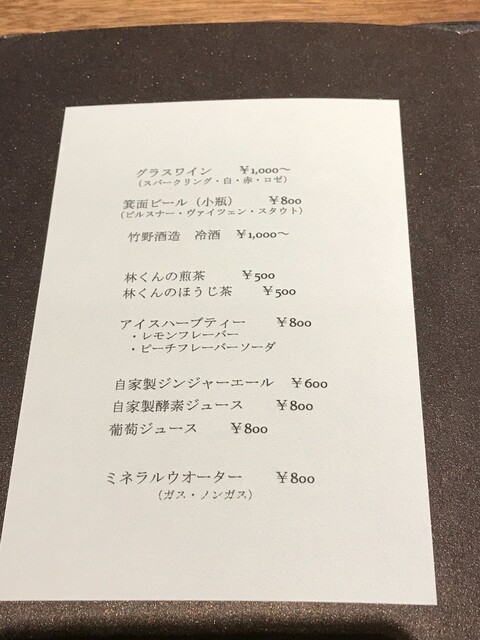 グラスワイン ￥1,000～
（スパークリング・白・赤・ロゼ）
箕面ビール（小瓶） ￥800
（ピルスナー・ヴァイツェン・スタウト）
竹野酒造 冷酒 ￥1,000～
林くんの煎茶 ￥500
林くんのほうじ茶 ￥500
アイスハーブティー ￥800
・レモンフレーバー
・ピーチフレーバーソーダ
自家製ジンジャーエール ￥600
自家製酵素ジュース ￥800
葡萄ジュース ￥800
ミネラルウオーター ￥800
（ガス・ノンガス）